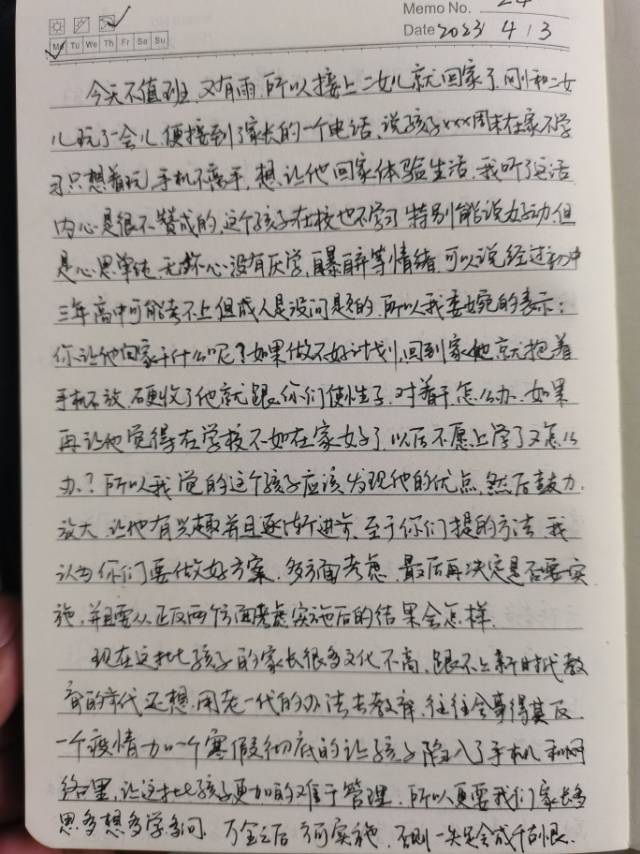 Memo No. 24
Date 2023 4 / 3
Mo Tu We Th Fr Sa Su
今天不值班,又有雨,所以接上二女儿就回家了,刚和二女
儿玩了一会儿,便接到了家长的一个电话,说孩子xxx周末在家不学
习只想着玩,手机不离手,想让他回家体验生活,我听了这话
内心是很不赞成的,这个孩子在校也不学习,特别能说好动,但
是心思单纯,无坏心没有厌学,自暴自弃等情绪,可以说经过初中
三年高中可能考不上但成人是没问题的,所以我委婉的表示:
你让他回家干什么呢?如果做不好计划,回到家她就抱着
手机不放,硬收了他就跟你们使性子,对着干,怎么办,如果
再让他觉得在学校不如在家好了,以后不愿上学了又怎么
办?所以我觉的这个孩子应该发现他的优点,然后鼓力
放大,让他有兴趣并且逐渐进步,至于你们提的方法,我
认为你们要做好方案,多方面考虑,最后再决定是否要实
施,并且要从正反两个方面考虑实施后的结果会怎样.
现在这批孩子的家长很多文化不高,跟不上新时代教
育的年代还想用老一代的办法去教育,往往会事得其反
一个疫情加一个寒假彻底的让孩子陷入了手机和网
络里,让这批孩子更加的难于管理.所以更要我们家长多
思多想多学多问,万全之后方可实施,否则一失足会成千古恨.